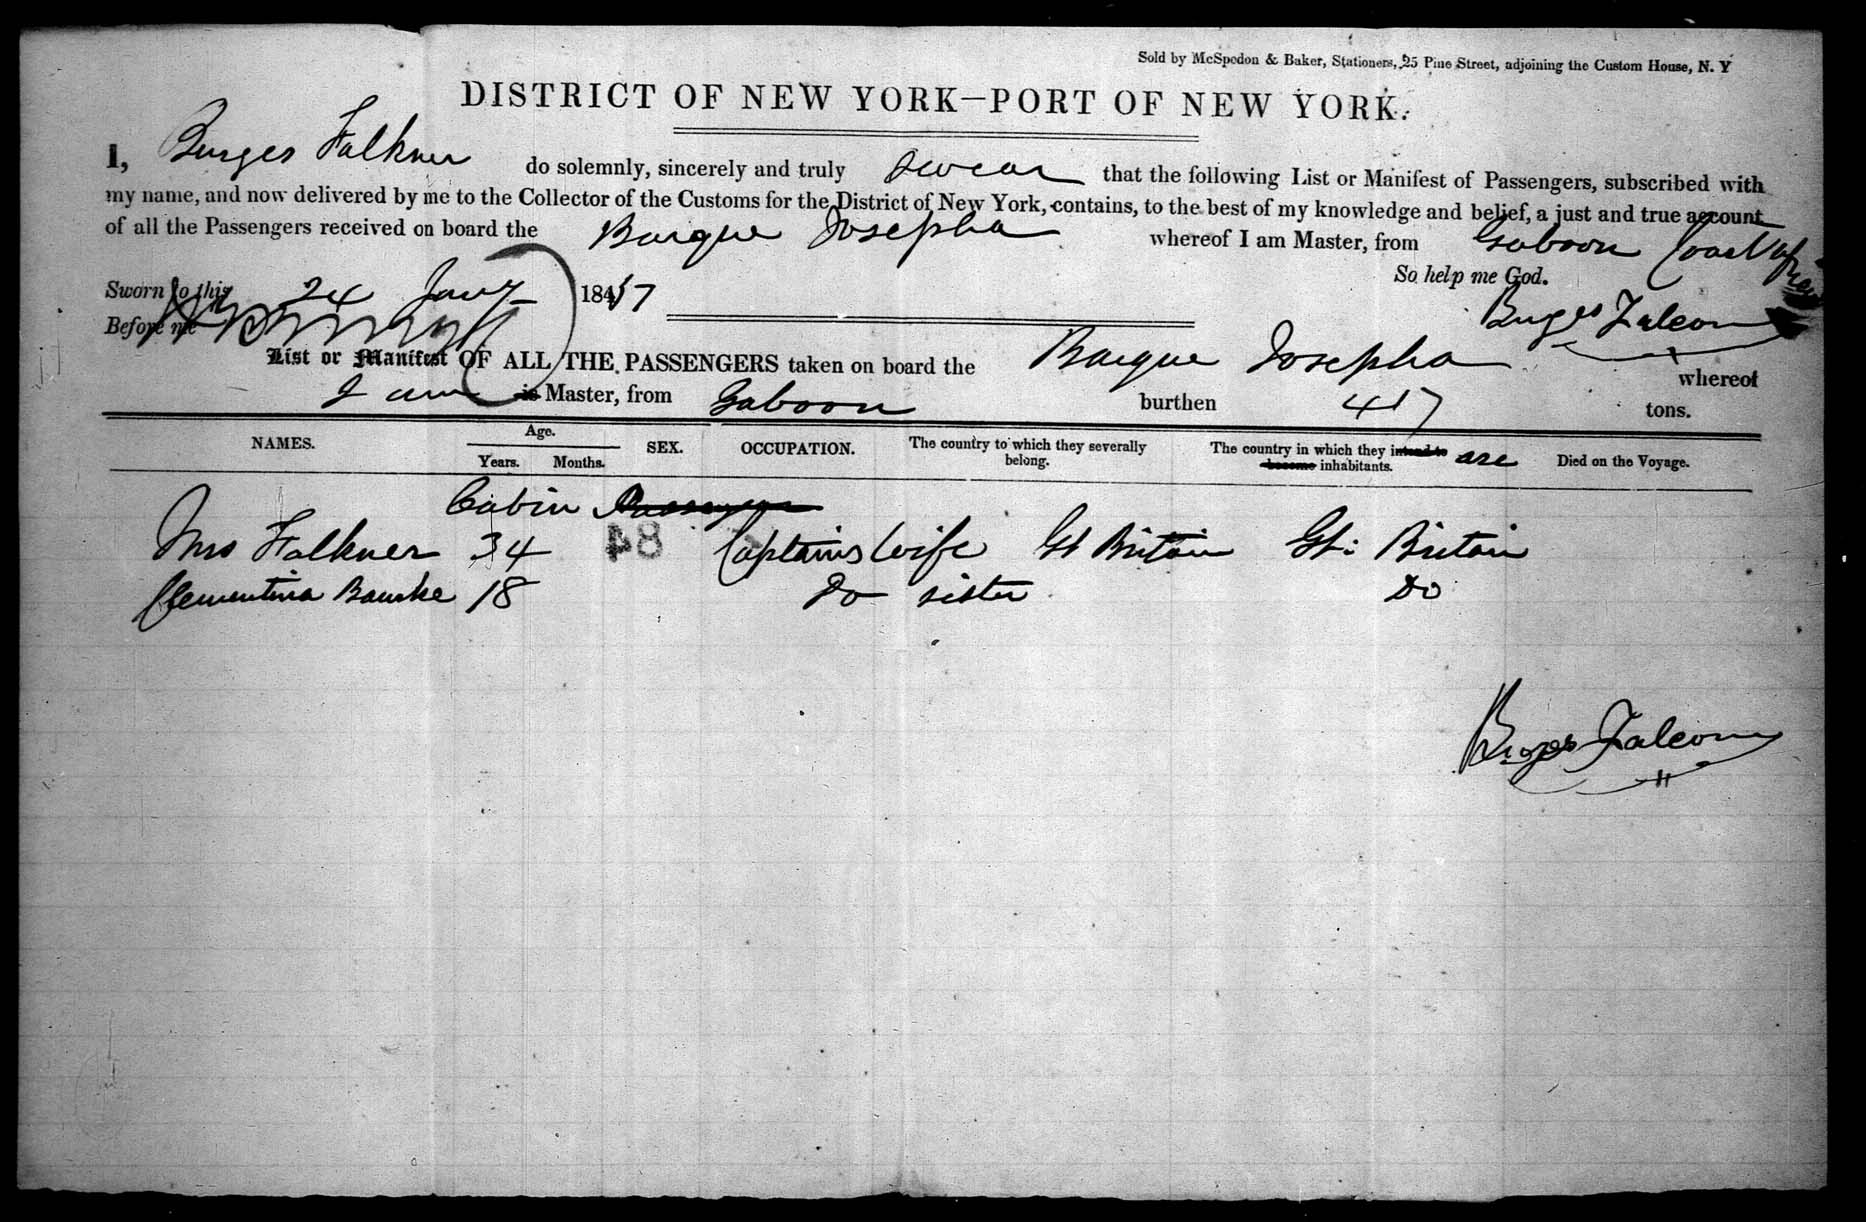 Sold by McSpedon & Baker, Stationers, 25 Pine Street, adjoining the Custom House, N. Y
DISTRICT OF NEW YORK—PORT OF NEW YORK.
I, Burges Falkner do solemnly, sincerely and truly swear that the following List or Manifest of Passengers, subscribed with
my name, and now delivered by me to the Collector of the Customs for the District of New York, contains, to the best of my knowledge and belief, a just and true account
of all the Passengers received on board the Barque Josepha whereof I am Master, from Gaboon Coast Africa
So help me God.
Sworn to this 24 Jany 1847
Burges Falcon
Before me
List or Manifest OF ALL THE PASSENGERS taken on board the Barque Josepha whereof
I am is Master, from Gaboon burthen 417 tons.
NAMES. Age. Years. Months. SEX. OCCUPATION. The country to which they severally belong. The country in which they intend to become are inhabitants. Died on the Voyage.
Cabin Passengers
Mrs Falkner 34 Captains Wife Gt Britain Gt: Britain
Clementina Bourke 18 Do sister Do
84
Burges Falcon